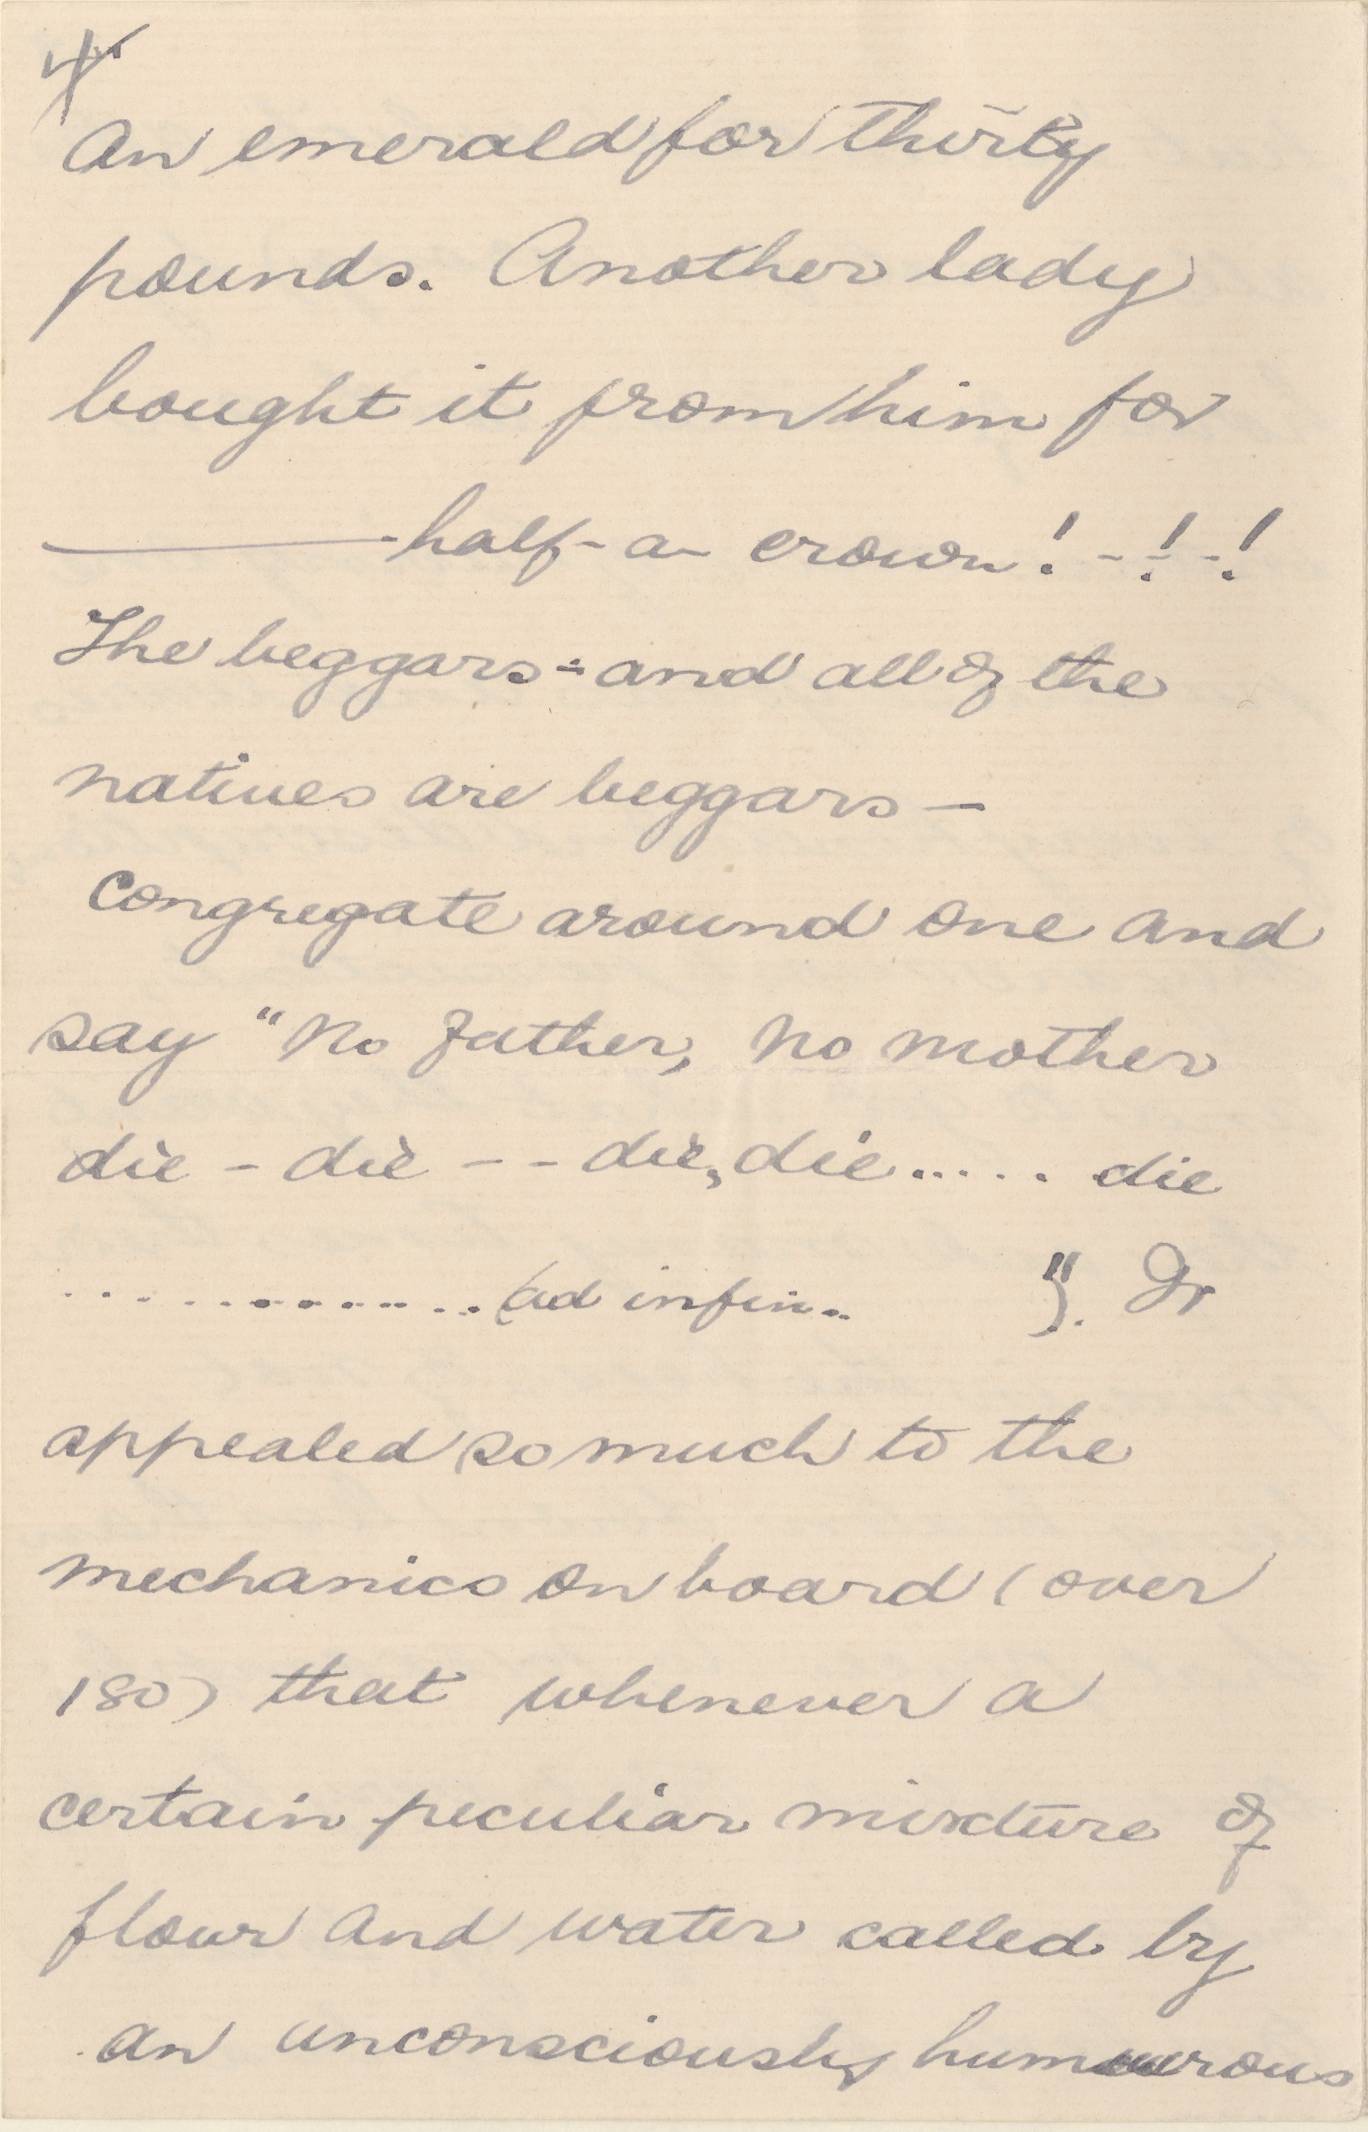 4
An emerald for thirty
pounds. Another lady
bought it from him for
——— half-a-crown! - ! - !
The beggars - and all of the
natives are beggars —
congregate around one and
say "No father, no mother
die - die - - die, die..... die
............... (ad infin..          )". It
appealed so much to the
mechanics on board (over
180) that whenever a
certain peculiar mixture of
flour and water called by
an unconsciously humourous